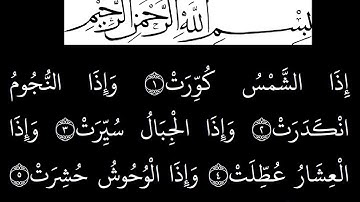 بِسْمِ اللَّهِ الرَّحْمَٰنِ الرَّحِيمِ
إِذَا الشَّمْسُ كُوِّرَتْ ۝١ وَإِذَا النُّجُومُ
انْكَدَرَتْ ۝٢ وَإِذَا الْجِبَالُ سُيِّرَتْ ۝٣ وَإِذَا
الْعِشَارُ عُطِّلَتْ ۝٤ وَإِذَا الْوُحُوشُ حُشِرَتْ ۝٥